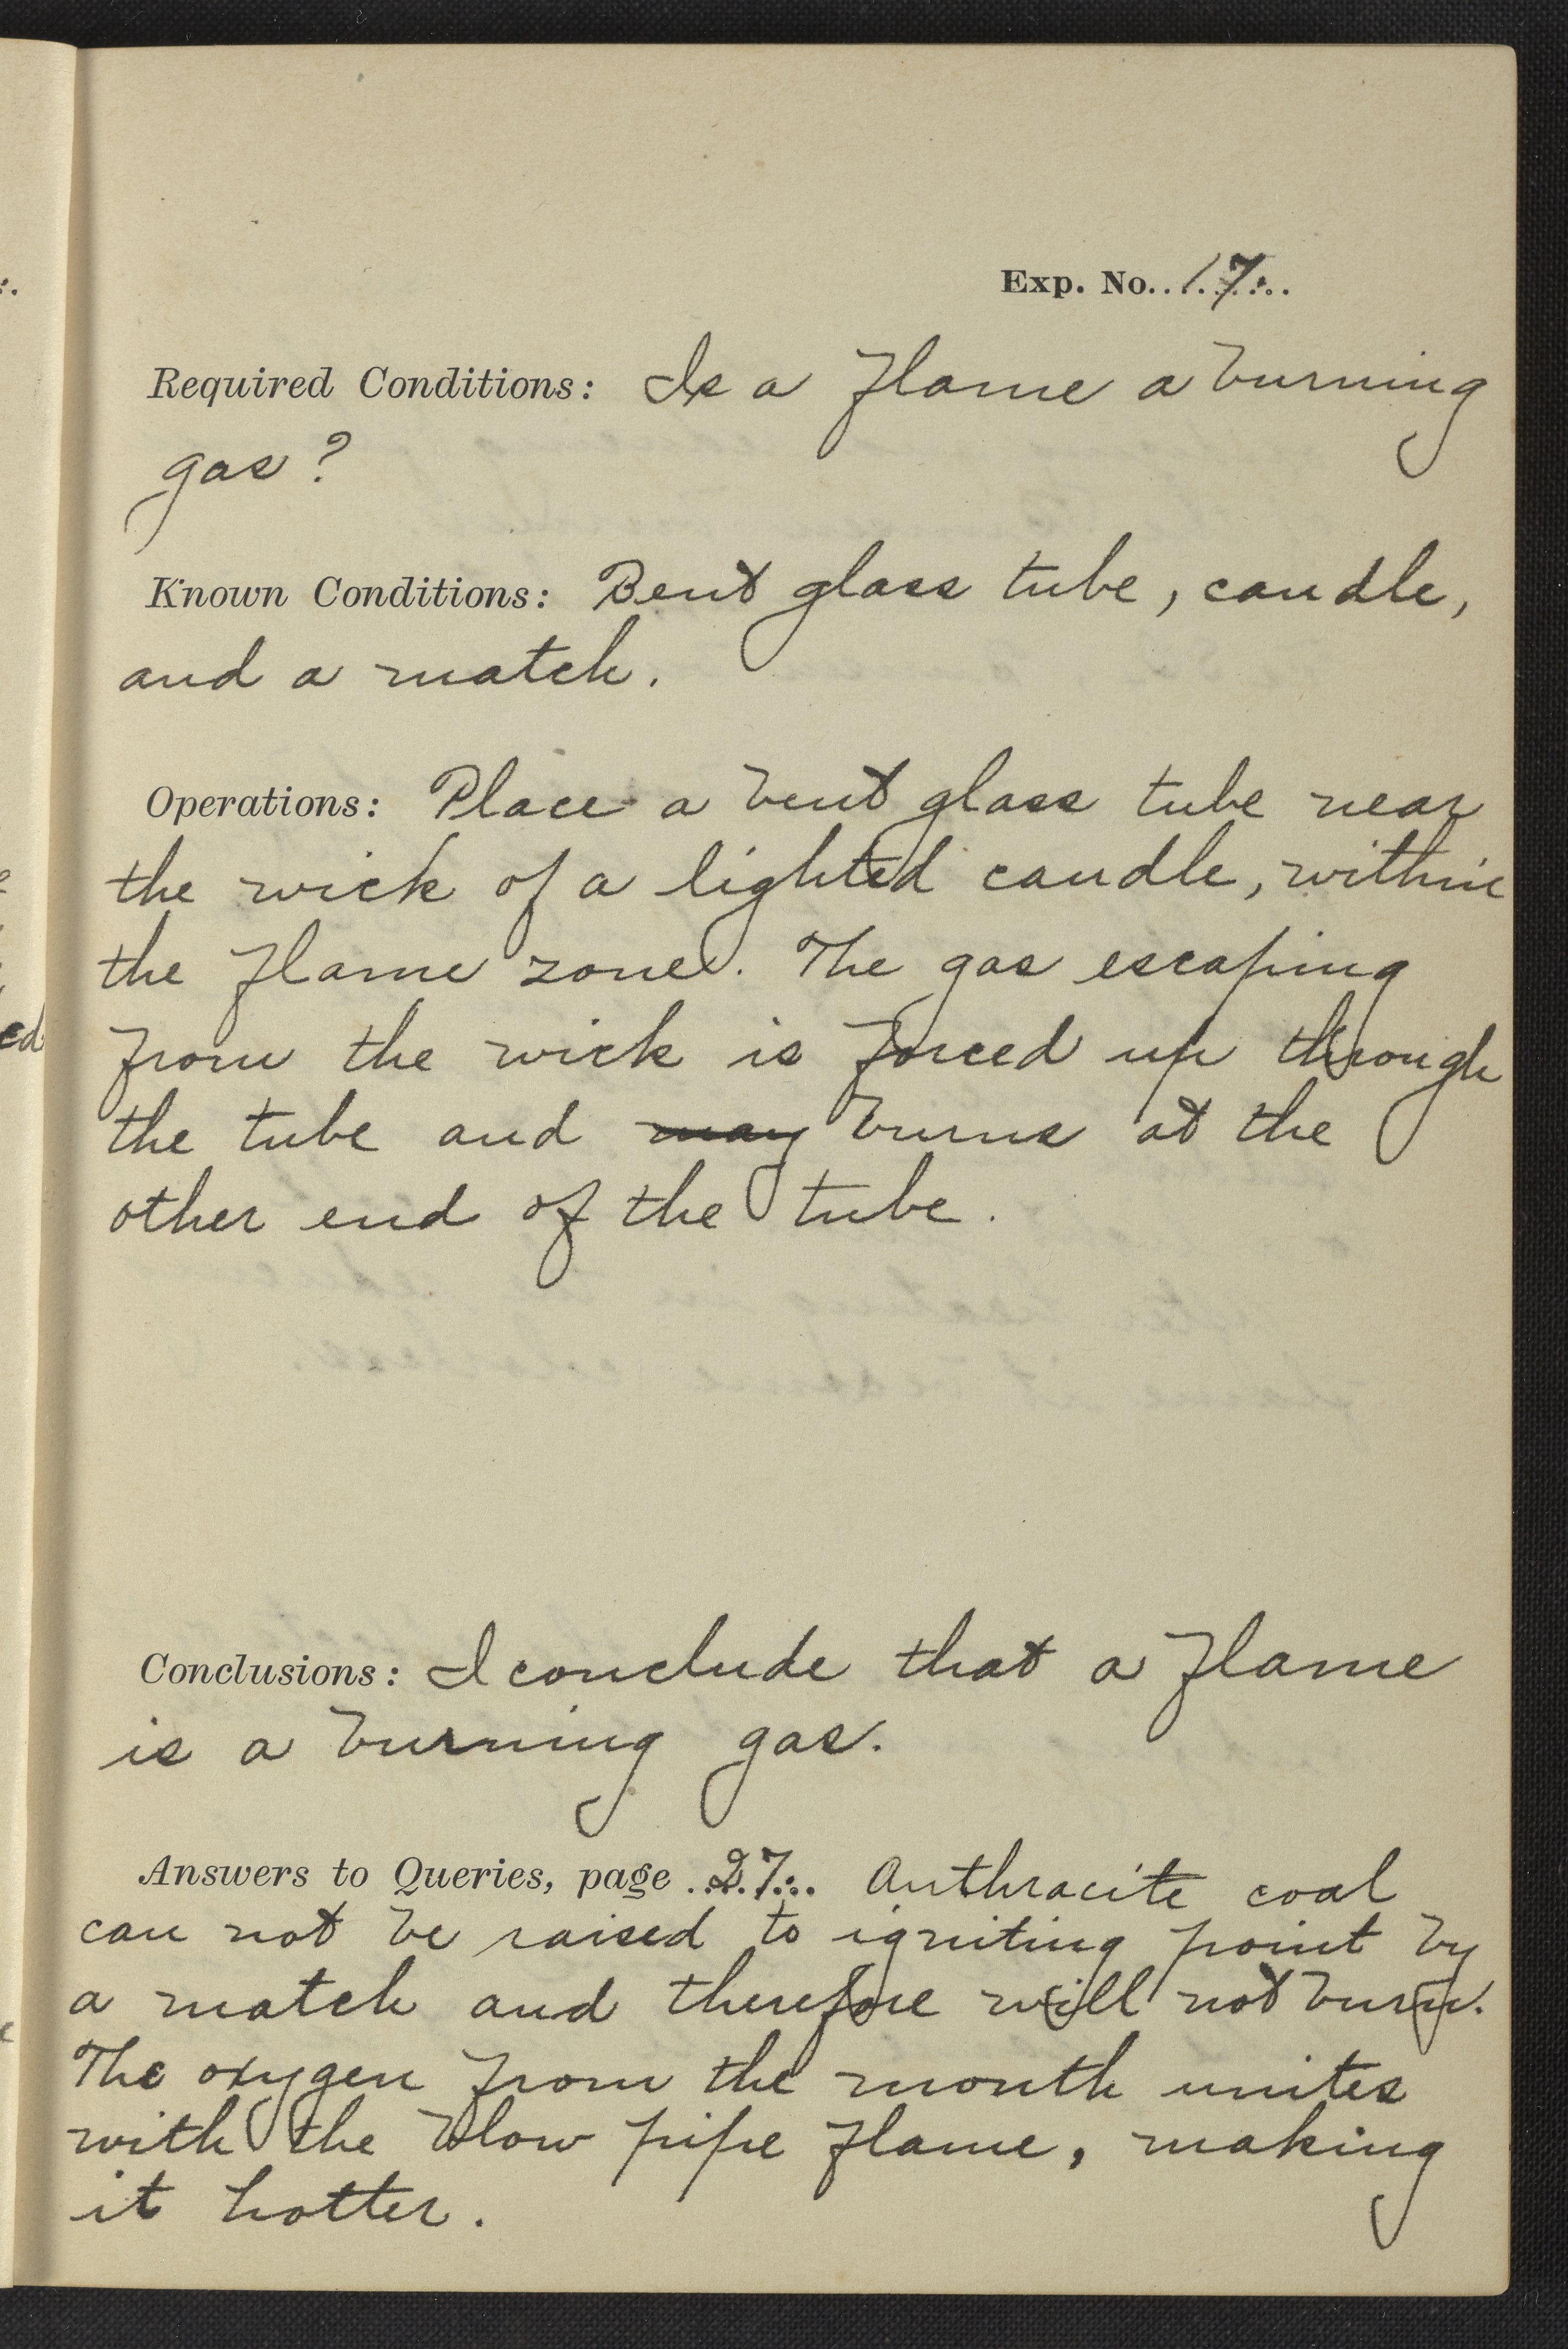 Exp. No. 17.
Required Conditions: Is a flame a burning
gas?
Known Conditions: Bent glass tube, candle,
and a match.
Operations: Place a bent glass tube near
the wick of a lighted candle, within
the flame zone. The gas escaping
from the wick is forced up through
the tube and may burns at the
other end of the tube.
ed
Conclusions: I conclude that a flame
is a burning gas.
Answers to Queries, page 27. Anthracite coal
can not be raised to igniting point by
a match and therefore will not burn.
The oxygen from the mouth unites
with the blow pipe flame, making
it hotter.